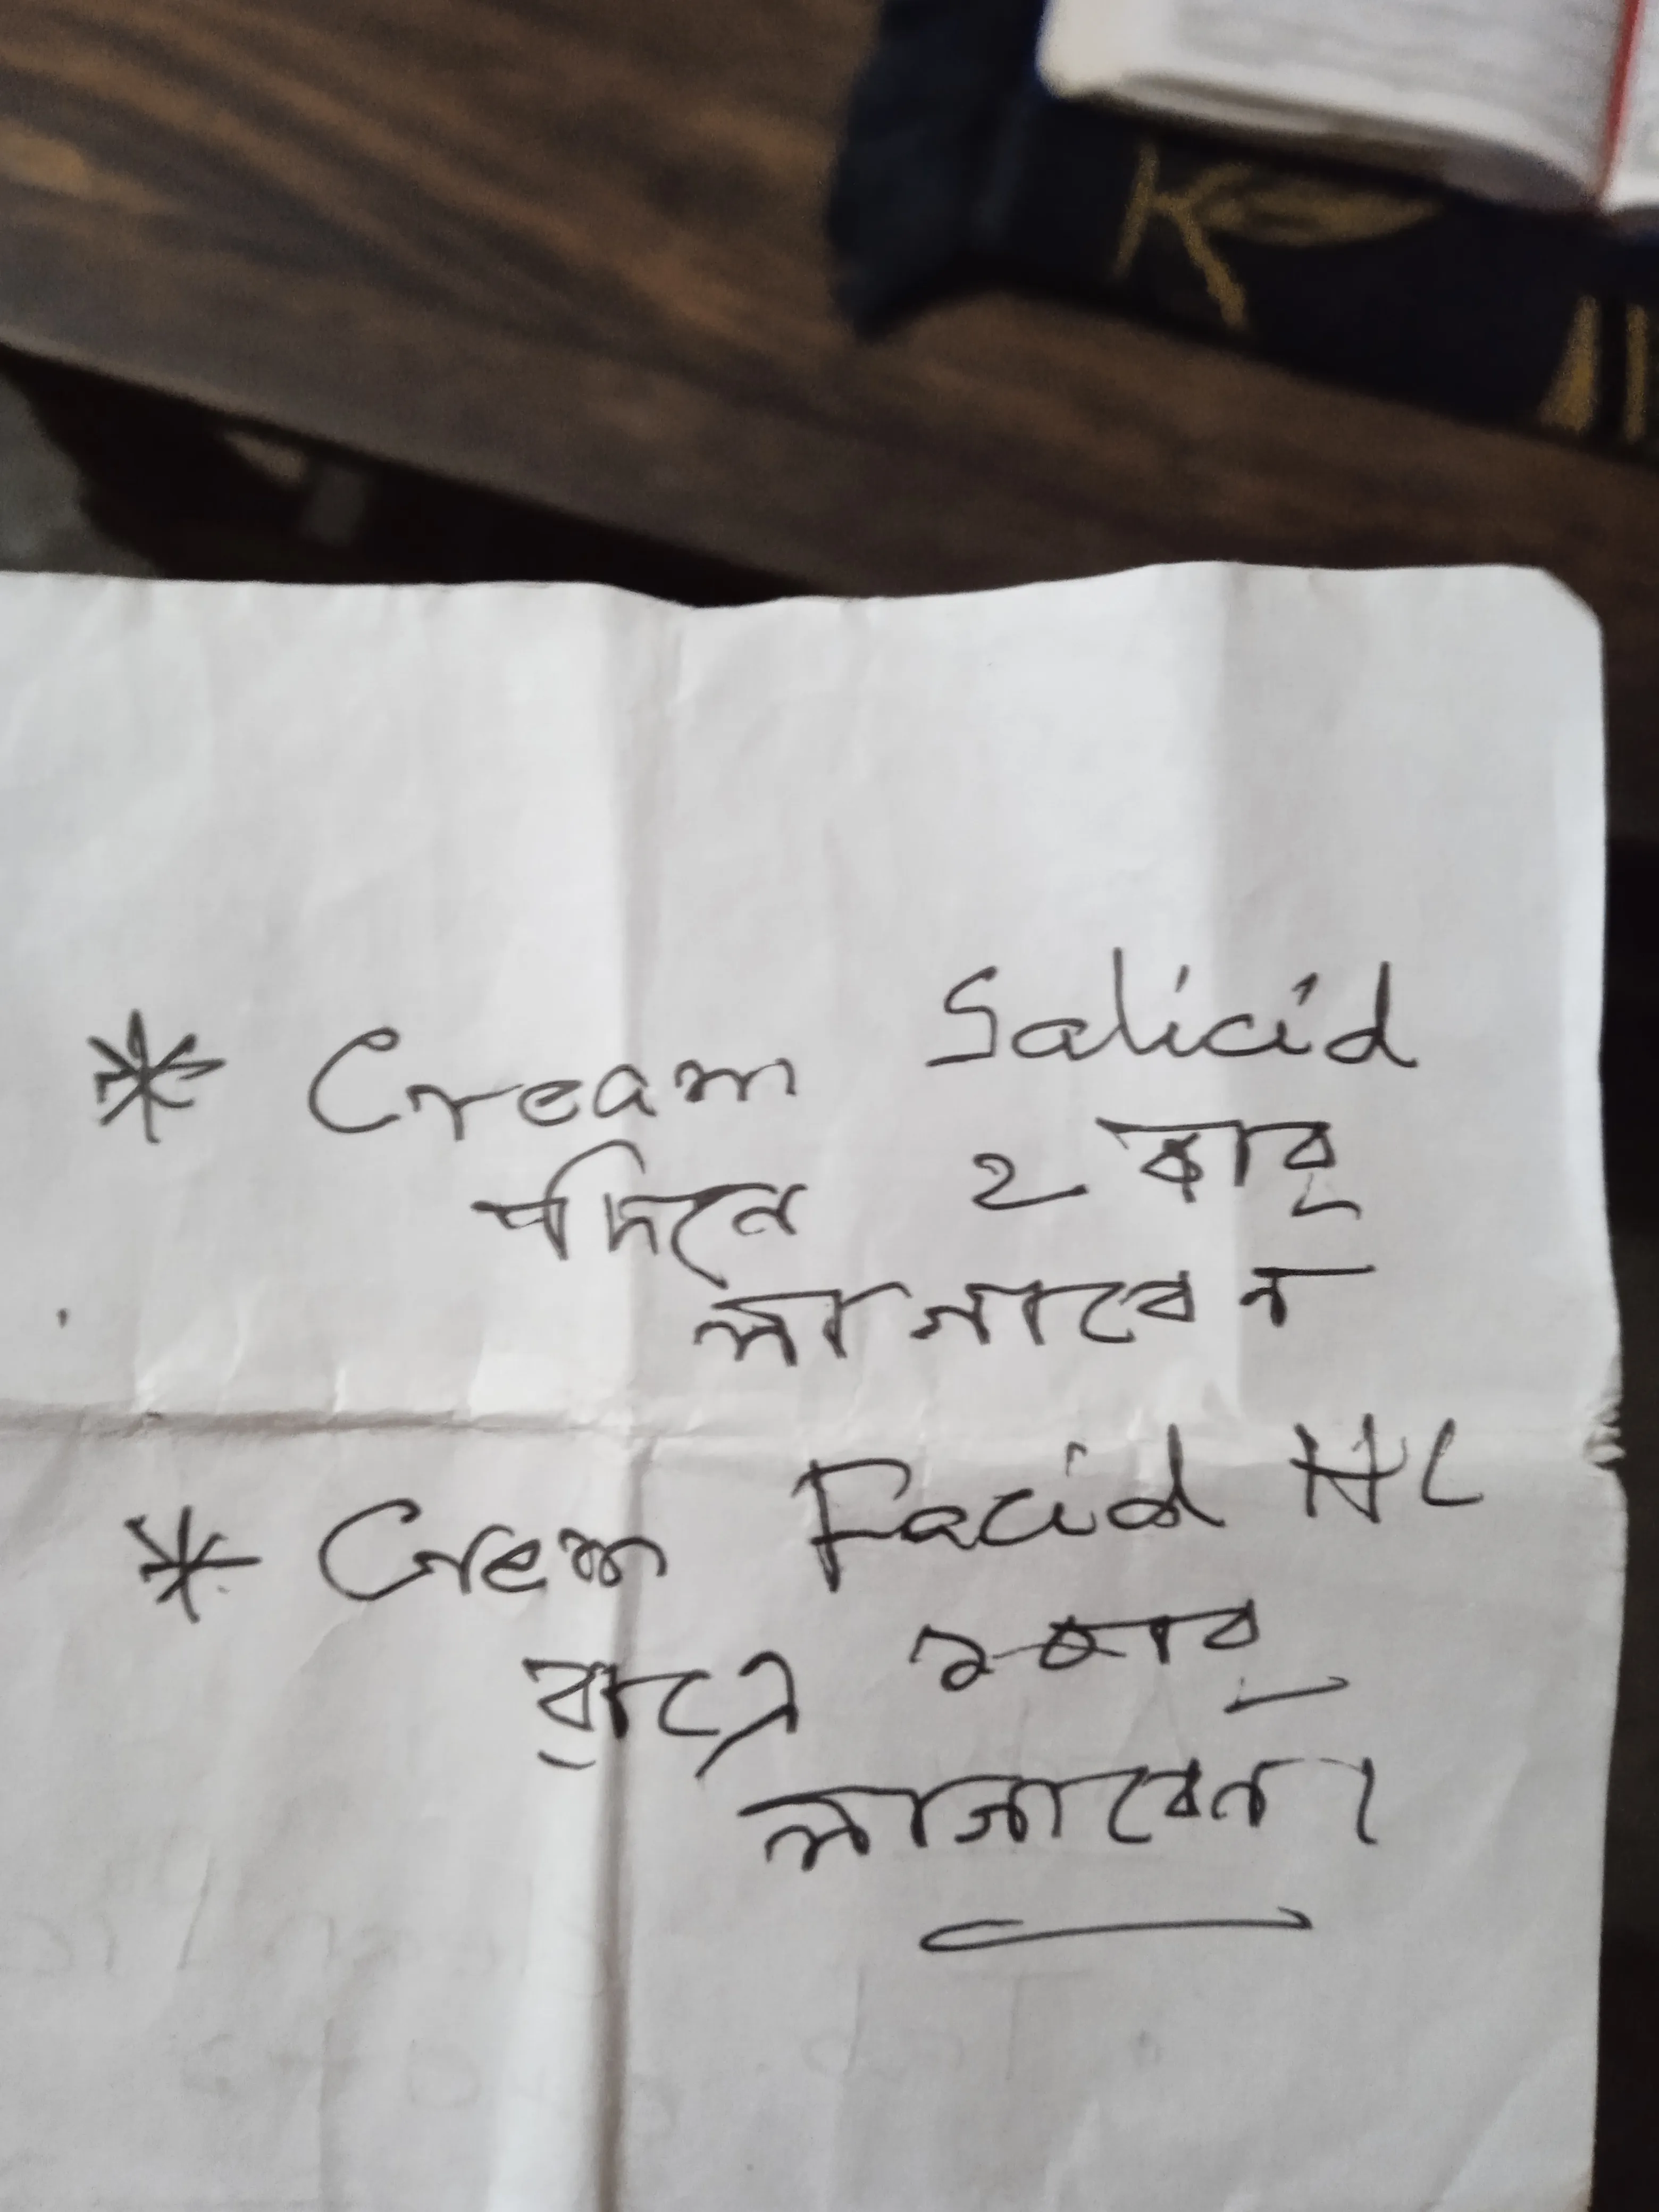 * Cream Salicid
দিনে ২ বার
লাগাবেন
* Crem Facid HC
রাত্রে ১ বার
লাগাবেন।